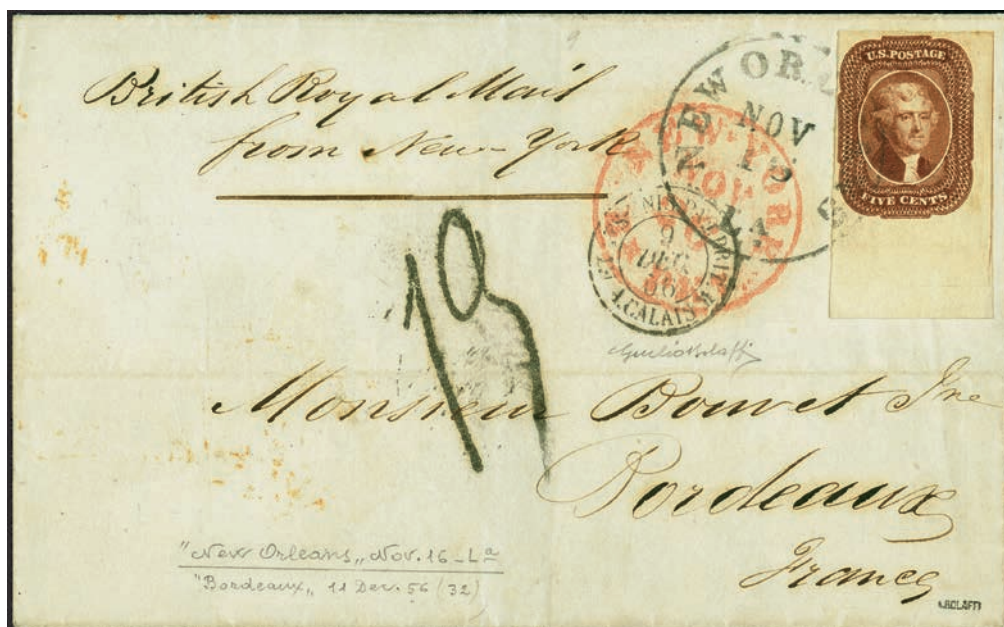 British Royal Mail
from New-York
NEW ORL
NOV
15
LA
U.S. POSTAGE
FIVE CENTS
NEW-YORK
NOV
9
DEC.
56
CALAIS
Monsieur Bouvet Jne
Bordeaux
France
"New Orleans„ Nov. 16 - La
"Bordeaux„ 11 Dec. 56 (32)
A.BOLAFFI